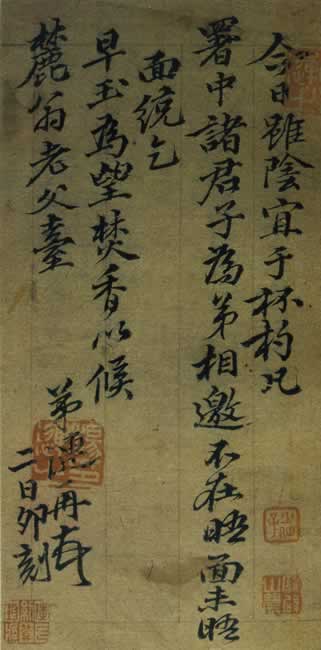 今日雖陰宜于杯杓凡
署中諸君子為弟相邀不在晤面未晤
面統乞
早玉為望焚香以候
麓翁老父臺
弟
二日卯刻